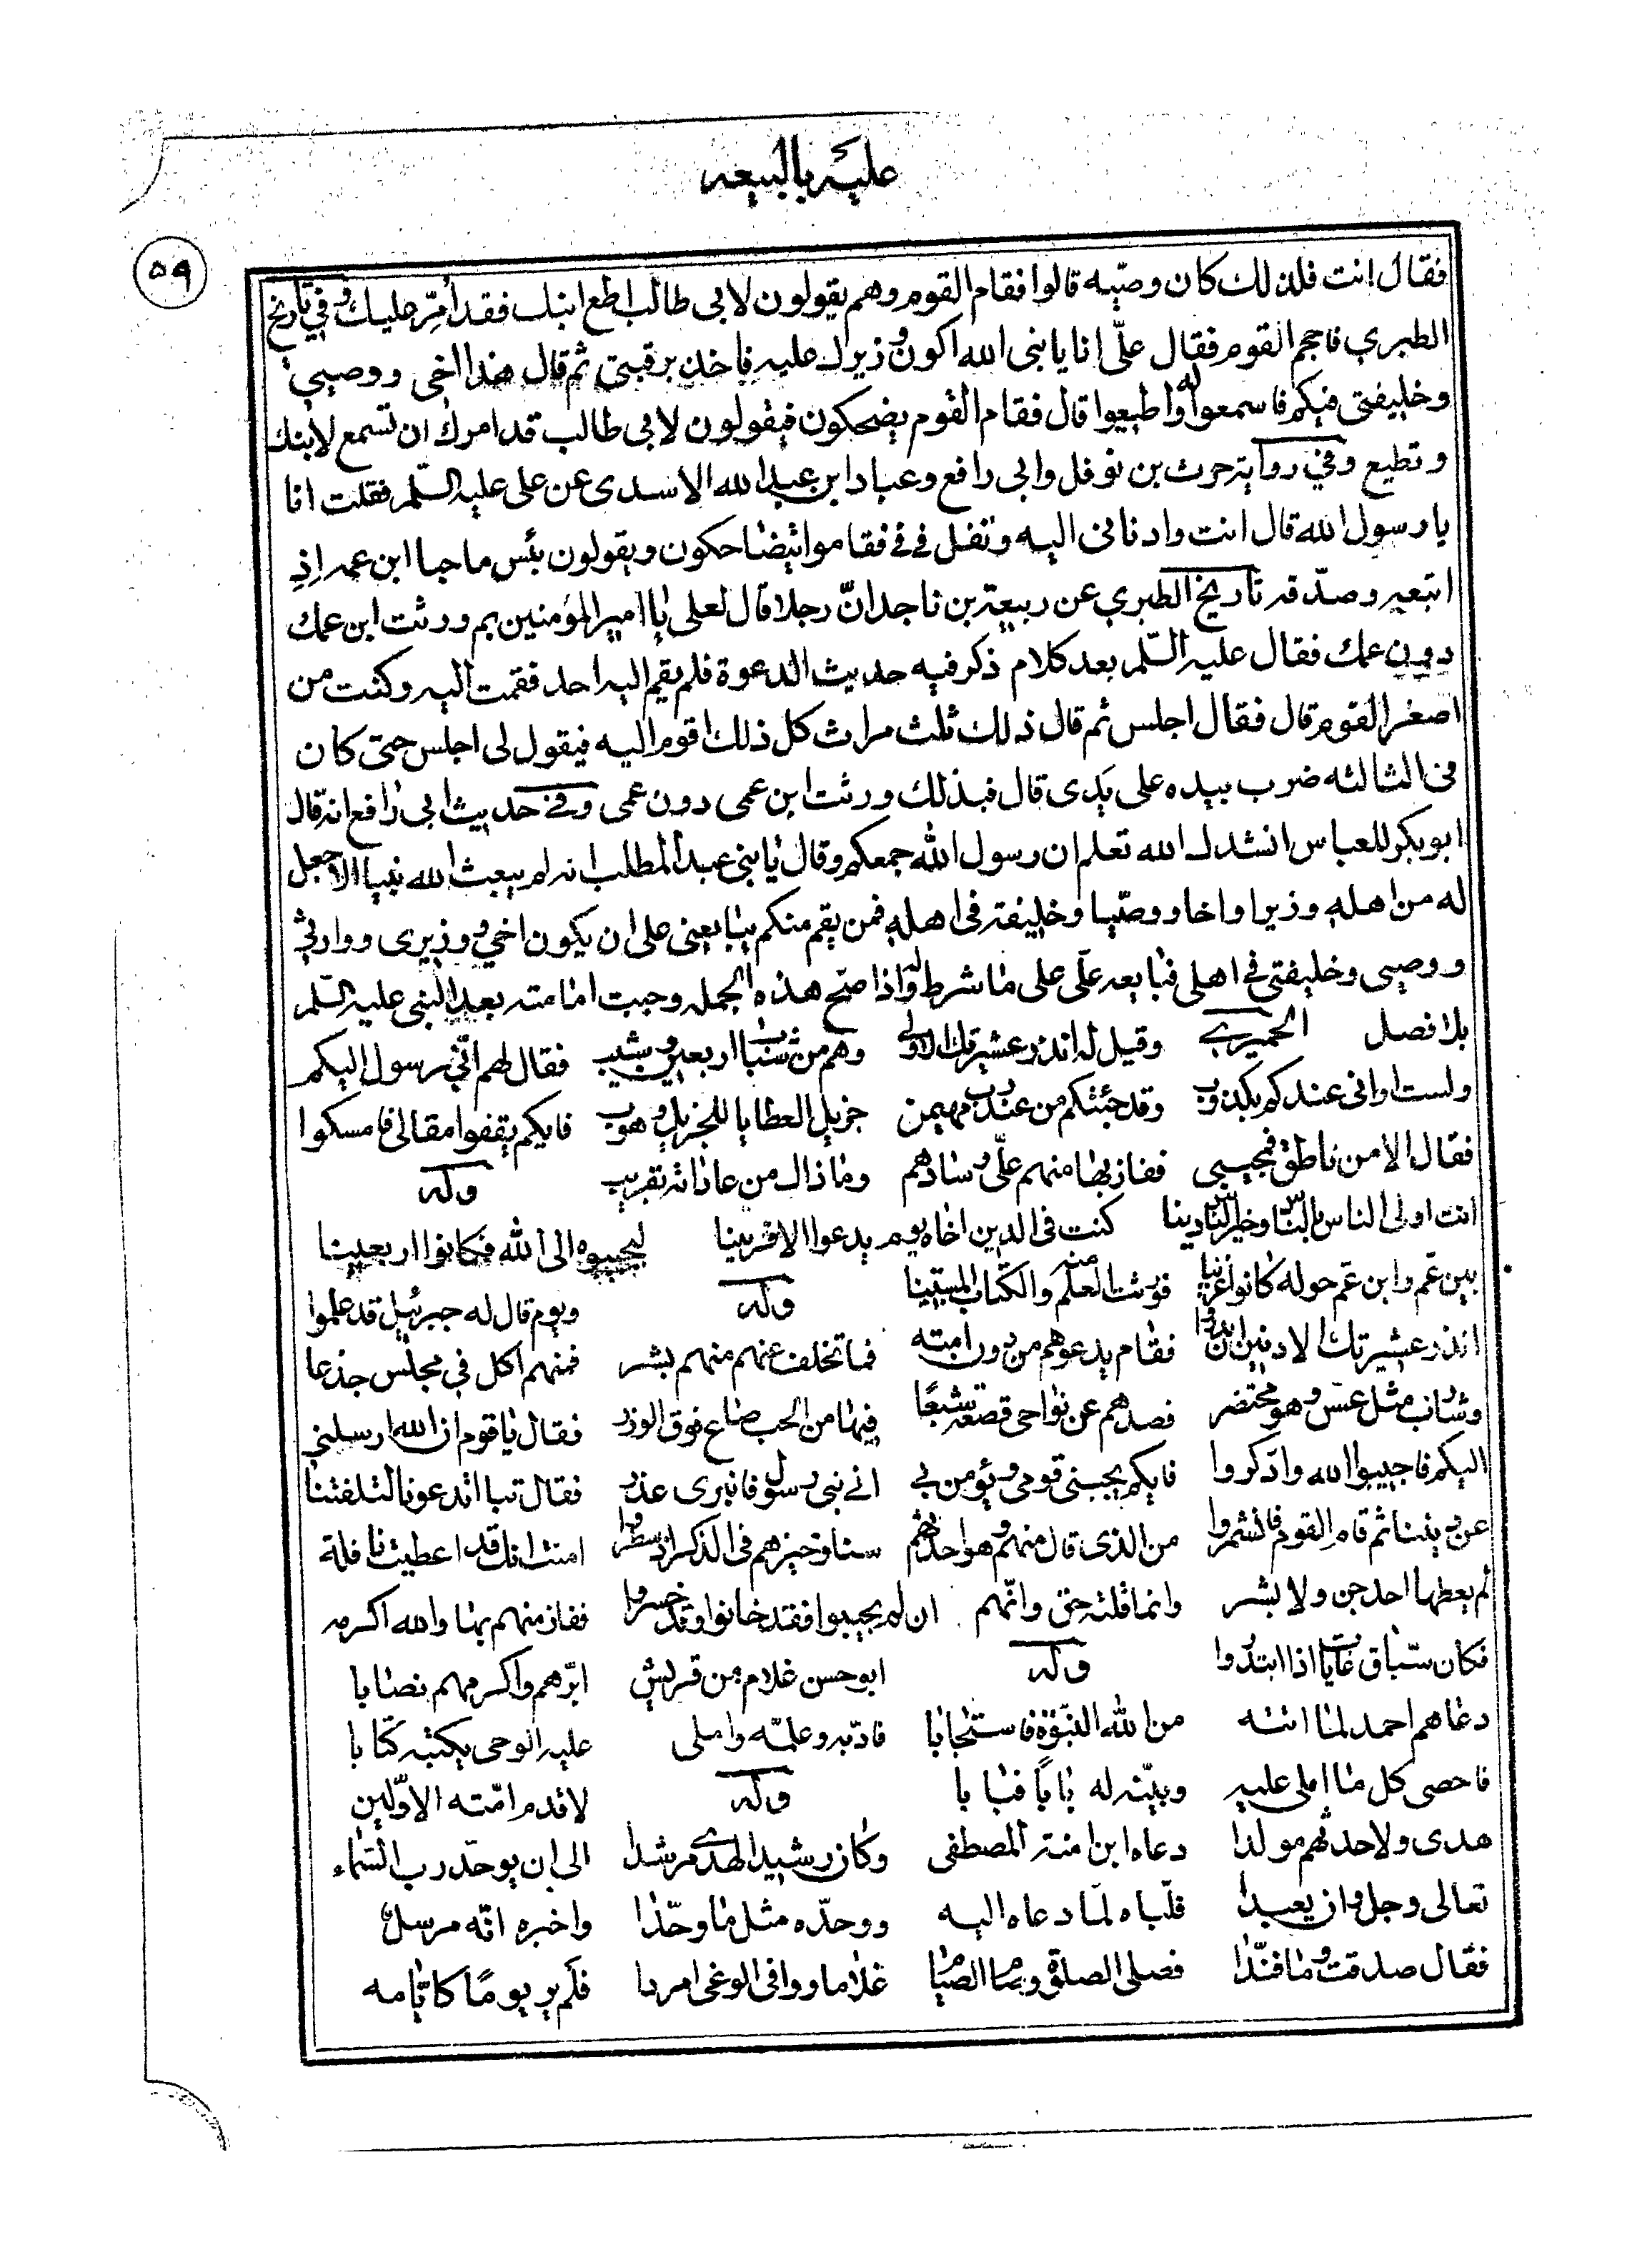 عليه بالبيعه
٥٩
فقال انت فلذلك كان وصيّه قالوا فقام القوم وهم يقولون لابى طالب اطع ابنك فقد أمّر عليك وفي تاريخ
الطبري فاحجم القوم فقال علىّ انا يا نبى الله اكون وزيرك عليه فاخذ برقبتي ثم قال هذا اخى ووصيى
وخليفتى فيكم فاسمعوا له واطيعوا قال فقام القوم يضحكون فيقولون لابى طالب قد امرك ان تسمع لابنك
وتطيع وفي رواية حرث بن نوفل وابى رافع وعباد ابن عبد الله الاسدى عن على عليه السّلم فقلت انا
يا رسول الله قال انت وادنانى اليه وتفل في في فقاموا يتضاحكون ويقولون بئس ما حبا ابن عمه اذ
اتبعه وصدّقه تاريخ الطبري عن ربيعة بن ناجد انّ رجلا قال لعلى يا امير المؤمنين بم ورثت ابن عمك
دون عمك فقال عليه السّلم بعد كلام ذكر فيه حديث الدعوة فلم يقم اليه احد فقمت اليه وكنت من
اصغر القوم قال فقال اجلس ثم قال ذلك ثلث مرات كل ذلك اقوم اليه فيقول لى اجلس حتى كان
فى الثالثه ضرب بيده على يدى قال فبذلك ورثت ابن عمى دون عمى وفي حديث ابى رافع انه قال
ابوبكر للعباس انشدك الله تعلم ان رسول الله جمعكم وقال يا بنى عبد المطلب انه لم يبعث الله نبيا الا جعل
له من اهله وزيرا واخا ووصيّا وخليفة فى اهله فمن يقم منكم يبايعنى على ان يكون اخي ووزيرى ووارثي
ووصيى وخليفتى في اهلى فبايعه علّى على ما شرط له واذا صح هذه الجمله وجبت امامته بعد النبى عليه السّلم
بلا فصل الحميري وقيل له انذر عشيرتك الاولى وهم من شباب اربعين وشيب فقال لهم انّي رسول اليكم
ولست اوانى عندكم بكذوب وقد جئتكم من عند رب مهيمن جزيل العطايا للجزيل وهوب فايكم يقفوا مقالى فامسكوا
فقال الا من ناطق فمجيبى ففاز بها منهم علىّ وسادهم وما ذاك من عاداته بقريب وله
انت اولى الناس بالنّاس وخير النّاس دينا كنت فى الدين اخاه يوم يدعوا الاقربينا ليجيبوه الى الله فكانوا اربعينا
بين عمّ وابن عمّ حوله كانوا عرينا فورثت العلم منه والكتاب المستبينا وله ويوم قال له جبرئيل قد علموا
انذر عشيرتك الادنين ان بدروا فقام يدعوهم من دون امته فما تخلف عنهم منهم بشر فمنهم اكل في مجلس جذعا
وشارب مثل عسّ وهو محتضر فصدهم عن نواحى قصعة شبعًا فيها من الحب صاع فوق الوزر فقال يا قوم ان الله ارسلني
اليكم فاجيبوا الله وادّكروا فايكم يجبنى قومى ويؤمن بي اني نبى رسول فانبرى عذر فقال تبا اتدعونا لتلفتنا
عن ديننا ثم قام القوم فانشمروا من الذى قال منهم وهو احدثهم سنا وخيرهم فى الذكر اذ سطروا امنت انك قد اعطيت نافلة
لم يعطها احد جن ولا بشر وانما قلته حق وانّهم ان لم يجيبوا فقد خانوا وقد خسروا ففاز منهم بها والله اكرمه
فكان سبّاق غايات اذا ابتدروا وله ابو حسن غلام من قريش ابرّهم واكرمهم نصابا
دعاهم احمد لما اتته من الله النبّوّة فاستجابا فادّبه وعلمّه واملى عليه الوحى يكتبه كتابا
فاحصى كل ما املى عليه وبيّنه له بابًا فبابا وله لاقدم امّته الاوّلين
هدى ولاحدثهم مولدا دعاه ابن امنة المصطفى وكان رشيد الهدى مرشدا الى ان يوحّد رب السّماء
تعالى وجل وان يعبدا فلّباه لمّا دعاه اليه ووحدّه مثل ما وحّدا واخبره انّه مرسل
فقال صدقت وما فنّدا فصلى الصلوة وصام الصيا غلاما ووافى الوغى امردا فلم ير يومًا كايّامه